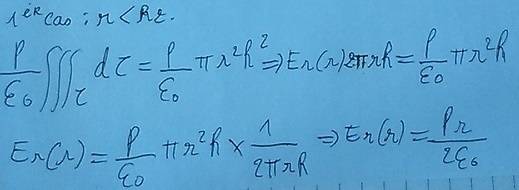 1er cas : r < Rz.
ρ/ε₀ ∭_τ dτ = ρ/ε₀ π r² h² ⇒ Er(r) 2π r h = ρ/ε₀ π r² h
Er(r) = ρ/ε₀ π r² h × 1/(2π r h) ⇒ Er(r) = ρr/2ε₀